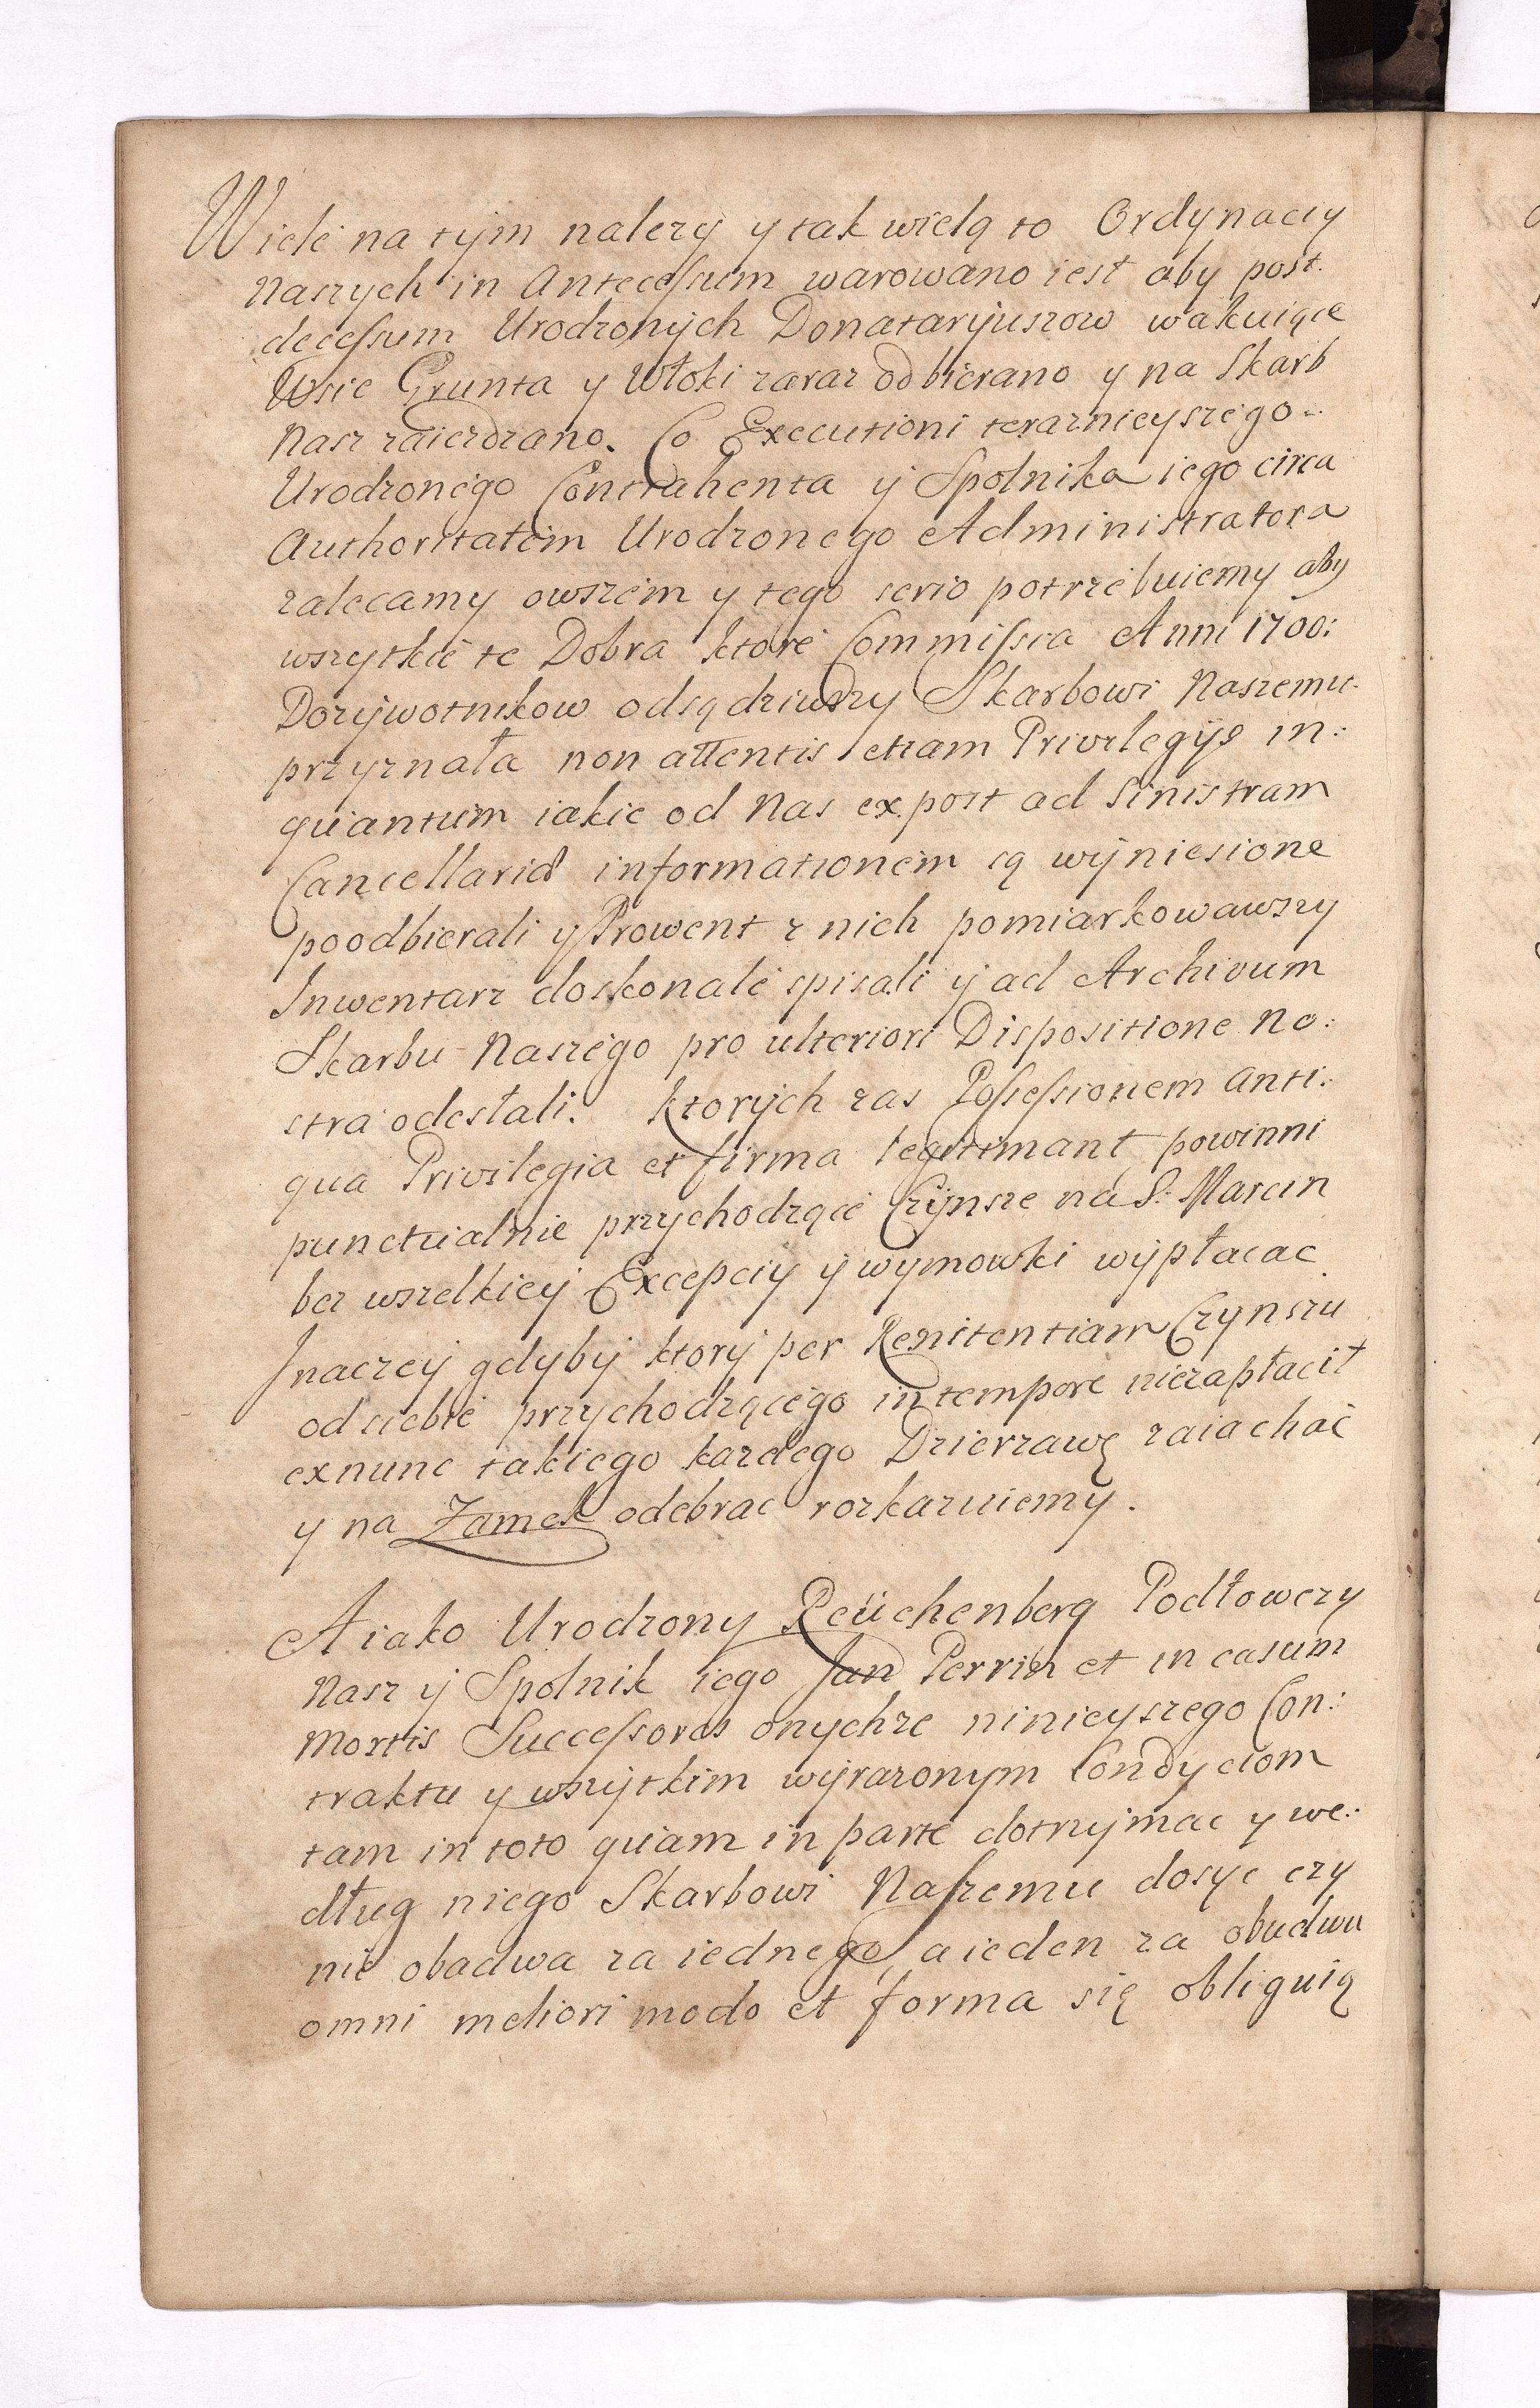 Wiele na tym nalezy y tak wielą to Ordynacıy
Naszych in Antecessum warowano iest aby post
decessum Urodzonych Donataryuszow wakuiące
Wsie Grunta y Włoki zaraz odbierano y na Skarb
Nasz zaiezdzano. Co Executioni teraznieyszego
Urodzonego Contrahenta y Spolnika iego circa
Authoritatem Urodzonego Administratora
zalecamy owszem y tego serio potrzebuiemy aby
wszytkie te Dobra ktore Commissia Anni 1700:
Dozywotnikow odsądziwszy Skarbowi Naszemu
przyznała non attentis etiam Privilegijs in:
quantum iakie od Nas ex post ad Sinistram
Cancellariæ informationem są wyniesione
poodbierali y Prowent z nich pomiarkowawszy
Inwentarz doskonale spisali y ad Archivum
Skarbu Naszego pro ulteriori Dispositione No:
stra odesłali. Ktorych zas Possessionem anti:
qua Privilegia et firma legitimant powinni
punctualnie przychodzące Czynsze na S: Marcin
bez wszelkiey Excepcıy y wymowki wypłacac
Inaczey gdyby ktory per Renitentiam Czynszu
od siebie przychodzącego in tempore niezapłacił
exnunc takiego kazdego Dzierzawę zaiachac
y na Zamek odebrac rozkazuiemy.
A iako Urodzony Reüchenberg Podłowczy
Nasz y Spolnik iego Jan Perrin et in casum
Mortis Successores onychze ninieyszego Con:
traktu y wszytkim wyrazonym Condycıom
tam in toto quam in parte dotrzymac y we:
dług niego Skarbowi Naszemu dosyc czy
nic obadwa za iednego, a ieden za obudwu
omni meliori modo et forma się obliguią